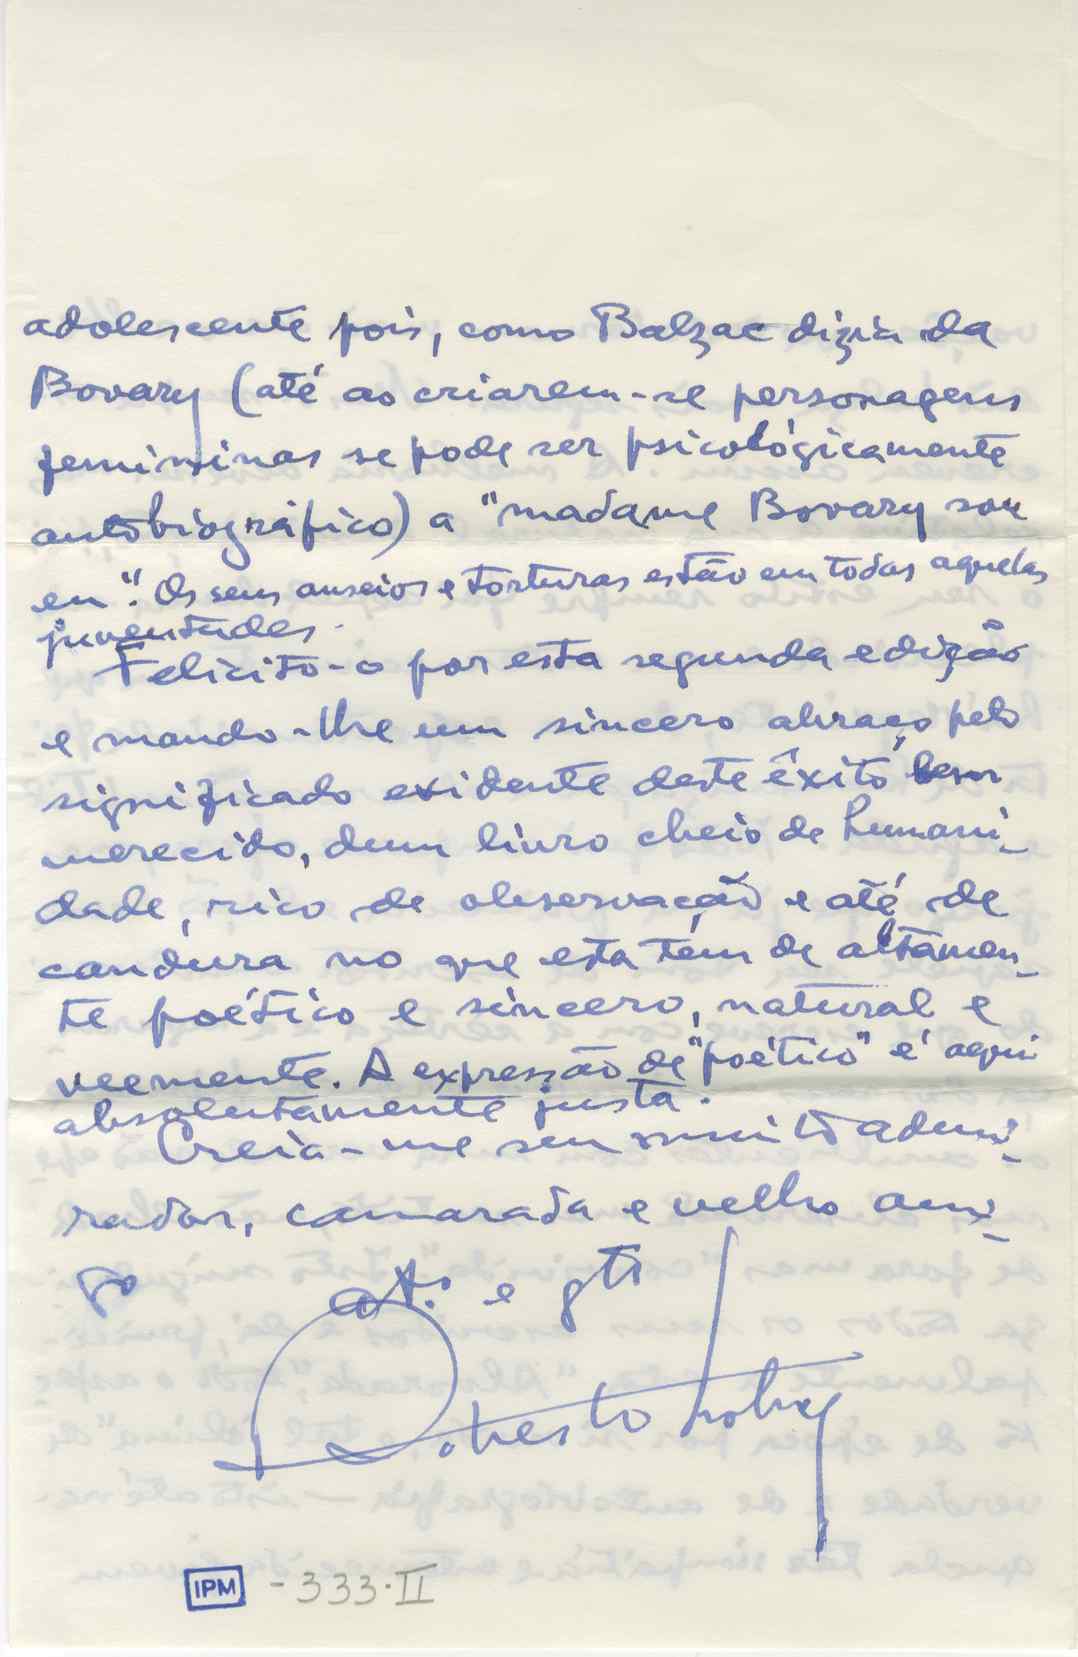 adolescente pois, como Balzac dizia da
Bovary (até ao criarem-se personagens
femininas se pode ser psicológicamente
autobiográfico) a "madame Bovary sou
eu". Os seus anseios e torturas estão em todas aquelas
juventudes.
Felicito-o por esta segunda edição
e mando-lhe um sincero abraço pelo
significado evidente deste êxito bem
merecido, dum livro cheio de humani-
dade, rico de observação e até de
candura no que esta tem de altamen-
te poético e sincero, natural e
veemente. A expressão de "poético" é aqui
absolutamente justa.
Creia-me seu muito admi-
rador, camarada e velho ami-
go
atº. e gto
Roberto Nobre
IPM -333-II